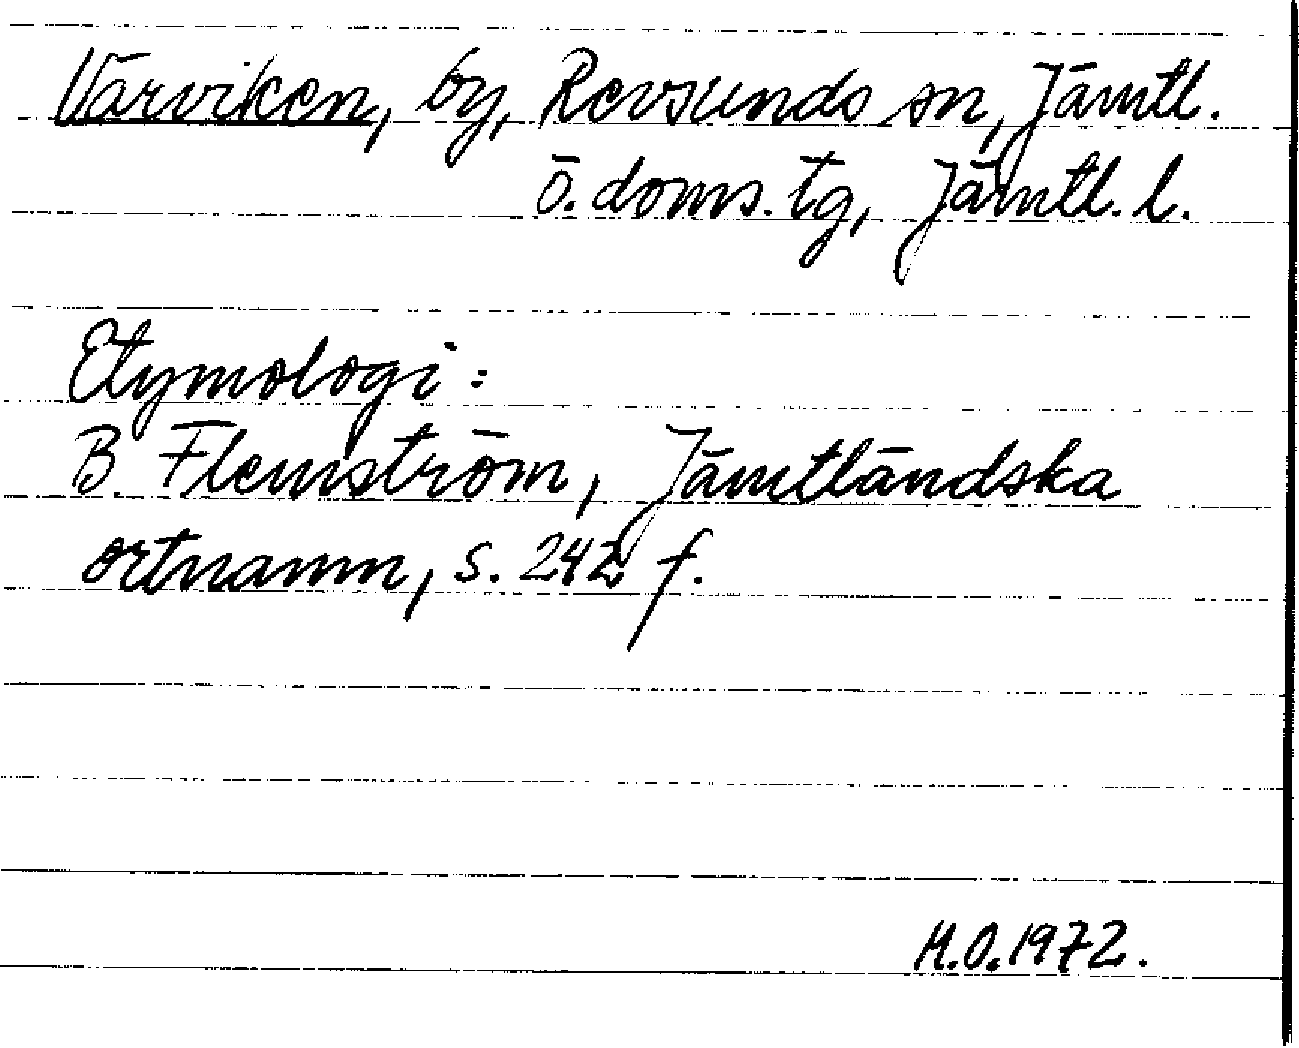 Värviken, by, Revsunds sn, Jämtl.
ö. doms. tg, Jämtl. l.
Etymologi:
B. Flemström, Jämtländska
ortnamn, s. 242 f.
M.O. 1972.